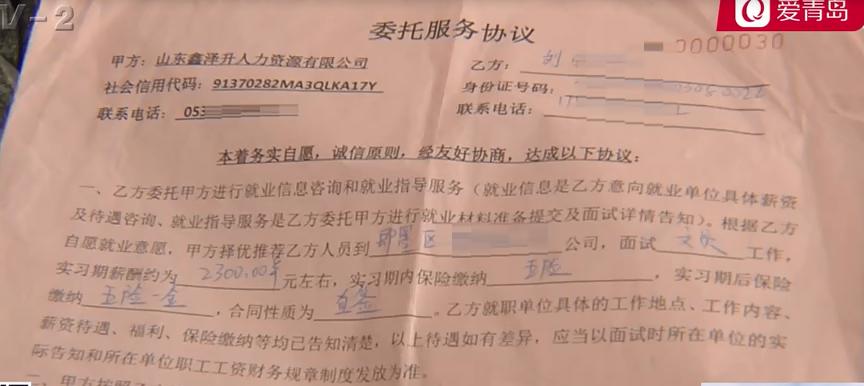 V-2
爱青岛
委托服务协议
0000030
甲方：山东鑫泽升人力资源有限公司
乙方：刘
社会信用代码：91370282MA3QLKA17Y
身份证号码：
联系电话：053
联系电话：
本着务实自愿，诚信原则，经友好协商，达成以下协议：
一、乙方委托甲方进行就业信息咨询和就业指导服务（就业信息是乙方意向就业单位具体薪资
及待遇咨询、就业指导服务是乙方委托甲方进行就业材料准备提交及面试详情告知）。根据乙方
自愿就业意愿，甲方择优推荐乙方人员到即墨区 公司，面试文员工作，
实习期薪酬约为2300.00元左右，实习期内保险缴纳五险，实习期后保险
缴纳五险一金，合同性质为直签。乙方就职单位具体的工作地点、工作内容、
薪资待遇、福利、保险缴纳等均已告知清楚，以上待遇如有差异，应当以面试时所在单位的实
际告知和所在单位职工工资财务规章制度发放为准。